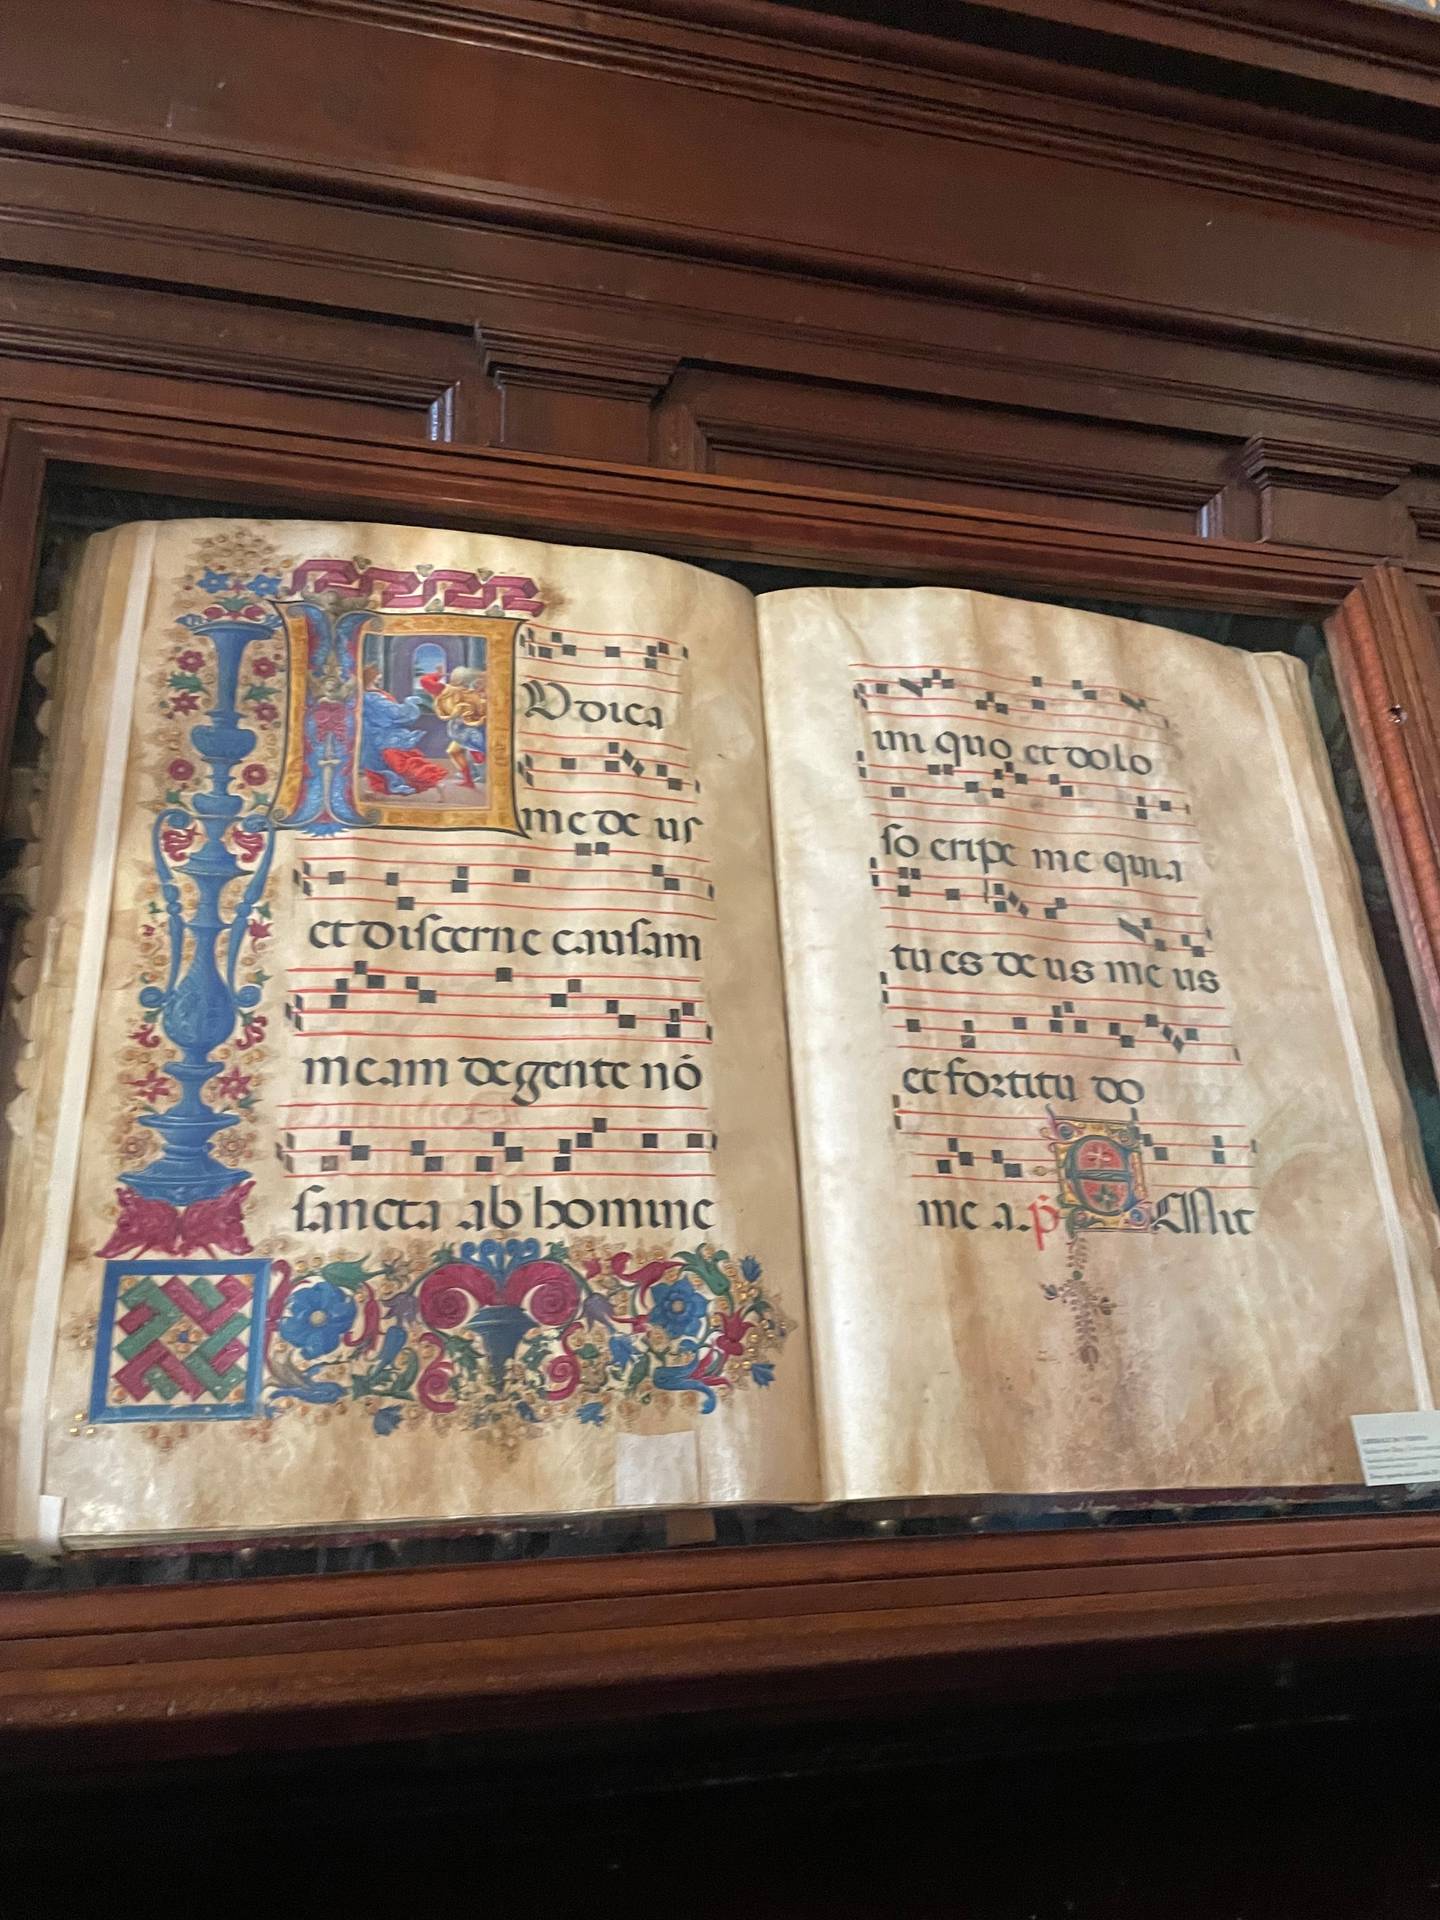 IVdica
me de us
et discerne causam
meam de gente nō
sancta ab homine
ini quo et dolo
so eripe me quia
tu es de us me us
et fortitu do
me a. p̄ EMit
LIBERALE DA VERONA